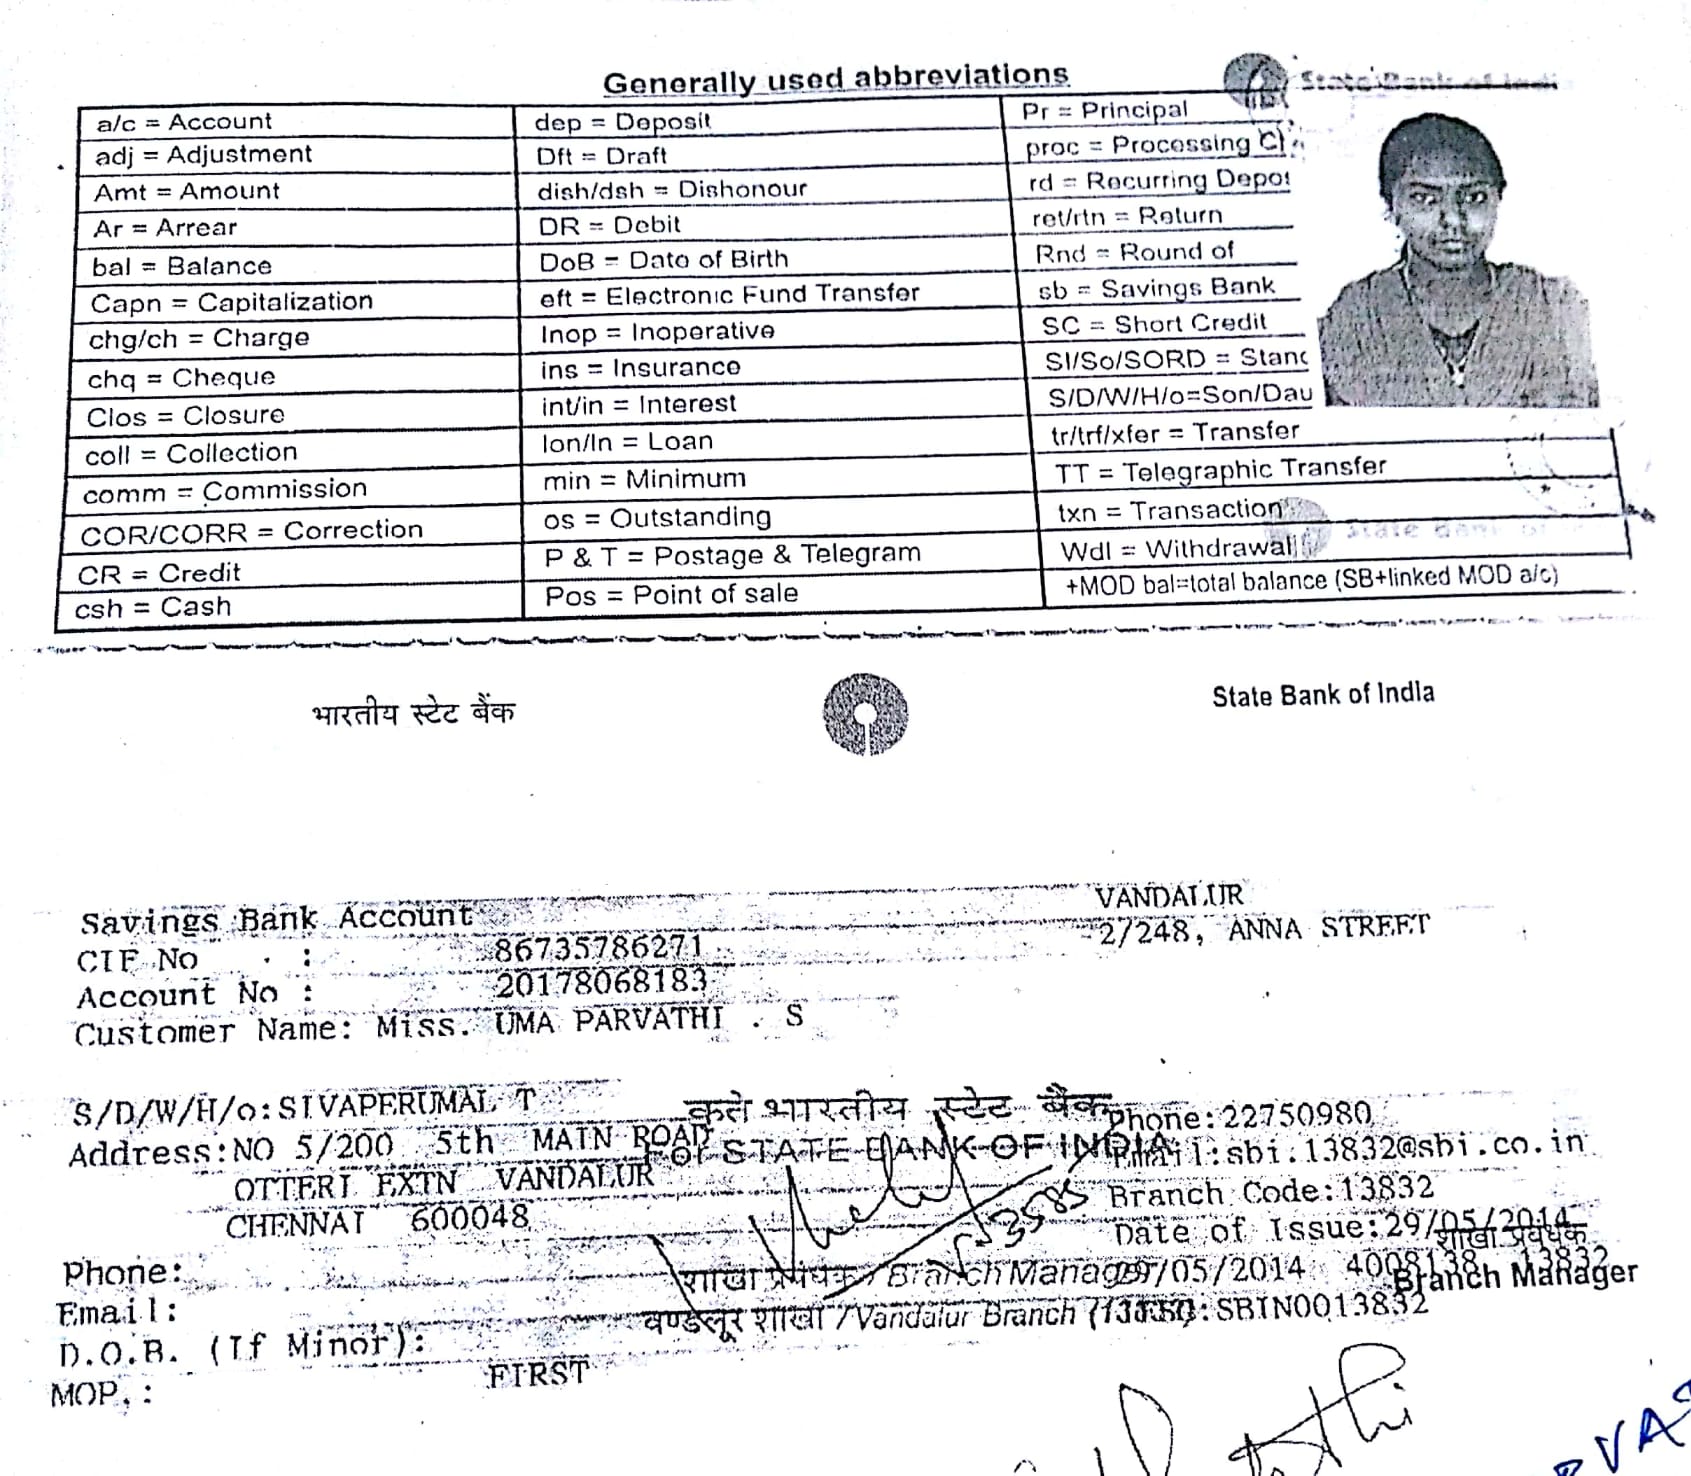 Generally used abbreviations
State Bank of Indi
a/c = Account
adj = Adjustment
Amt = Amount
Ar = Arrear
bal = Balance
Capn = Capitalization
chg/ch = Charge
chq = Cheque
Clos = Closure
coll = Collection
comm = Commission
COR/CORR = Correction
CR = Credit
csh = Cash
dep = Deposit
Dft = Draft
dish/dsh = Dishonour
DR = Debit
DoB = Date of Birth
eft = Electronic Fund Transfer
Inop = Inoperative
ins = Insurance
int/in = Interest
lon/ln = Loan
min = Minimum
os = Outstanding
P & T = Postage & Telegram
Pos = Point of sale
Pr = Principal
proc = Processing
rd = Recurring Depos
ret/rtn = Return
Rnd = Round of
sb = Savings Bank
SC = Short Credit
SI/So/SORD = Stand
S/D/W/H/o=Son/Dau
tr/trf/xfer = Transfer
TT = Telegraphic Transfer
txn = Transaction
State Bank of
Wdl = Withdrawal
+MOD bal=total balance (SB+linked MOD a/c)
भारतीय स्टेट बैंक
State Bank of India
Savings Bank Account
CIF No : 86735786271
Account No : 20178068183
Customer Name: Miss. UMA PARVATHI . S
VANDALUR
2/248, ANNA STREET
S/D/W/H/o:SIVAPERUMAL T
Address:NO 5/200 5th MAIN ROAD
OTTERI EXTN VANDALUR
CHENNAI 600048
Phone:
Email:
D.O.B. (If Minor):
MOP. : FIRST
कृते भारतीय स्टेट बैंक
For STATE BANK OF INDIA
शाखा प्रबंधक / Branch Manager
वण्डलूर शाखा / Vandalur Branch
Phone:22750980
Email:sbi.13832@sbi.co.in
Branch Code:13832
Date of Issue:29/05/2014
शाखा प्रबंधक
29/05/2014 4008138 13832
Branch Manager
SBIN0013832